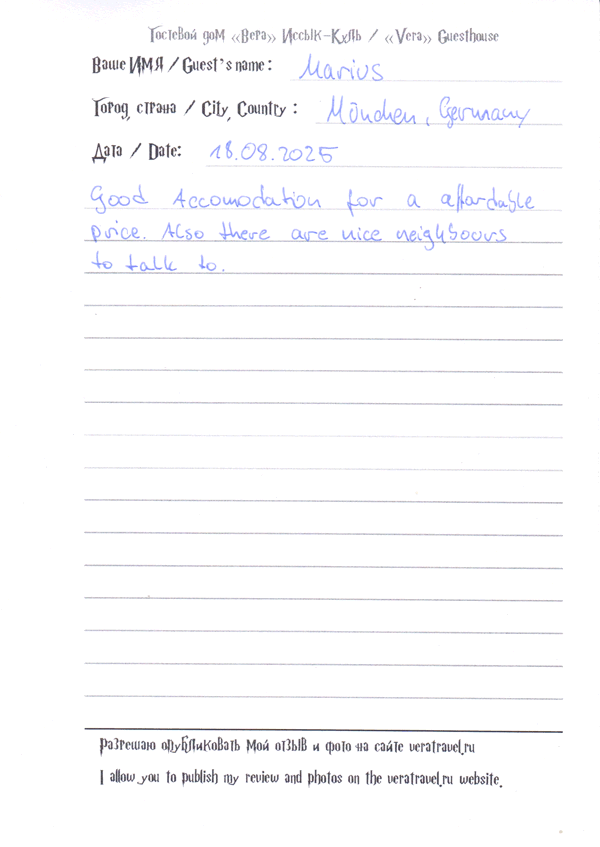 Гостевой дом «Вера» Иссык-Куль / «Vera» Guesthouse
Ваше ИМЯ / Guest's name: Marius
Город, страна / City, Country: München, Germany
Дата / Date: 18.08.2025
Good Accomodation for a affordable
price. Also there are nice neighbours
to talk to.
Разрешаю опубликовать мой отзыв и фото на сайте veratravel.ru
I allow you to publish my review and photos on the veratravel.ru website.